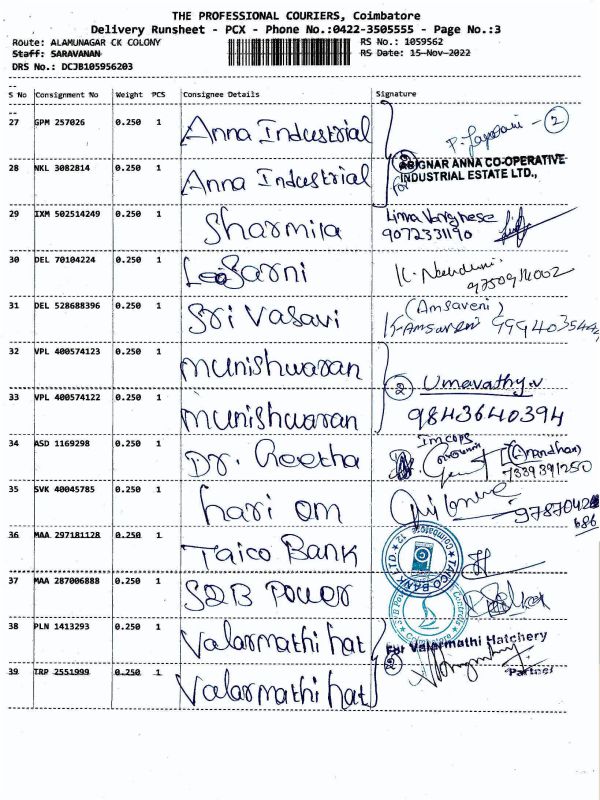 THE PROFESSIONAL COURIERS, Coimbatore
Delivery Runsheet - PCX - Phone No.:0422-3505555 - Page No.:3
Route: ALAMUNAGAR CK COLONY RS No.: 1059562
Staff: SARAVANAN RS Date: 15-Nov-2022
DRS No.: DCJB105956203
S No Consignment No Weight PCS Consignee Details Signature
27 GPM 257026 0.250 1 Anna Industrial 2
28 NKL 3082814 0.250 1 Anna Industrial
for ARIGNAR ANNA CO-OPERATIVE
INDUSTRIAL ESTATE LTD.,
29 IXM 502514249 0.250 1 Sharmila Lima Varghese
9072331190
30 DEL 70104224 0.250 1
31 DEL 528688396 0.250 1 Sri Vasavi (Amsaveni)
K. Amsaveni
32 VPL 400574123 0.250 1 Munishwaran
22 Umavathy.v
33 VPL 400574122 0.250 1 Munishwaran 9843640394
34 ASD 1169298 0.250 1 Dr. Geetha (Anandhan)
7339391250
35 SVK 40045785 0.250 1 hari om
36 MAA 297181128 0.250 1 Taico Bank
TAICO BANK LTD. COIMBATORE 12
37 MAA 287006888 0.250 1 S2B Power
38 PLN 1413293 0.250 1 Valarmathi hat
For Valarmathi Hatchery
39 TRP 2551999 0.250 1 Valarmathi hat
Partner